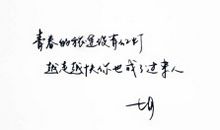 青春的旅途没有红灯
越走越快你也成了过来人